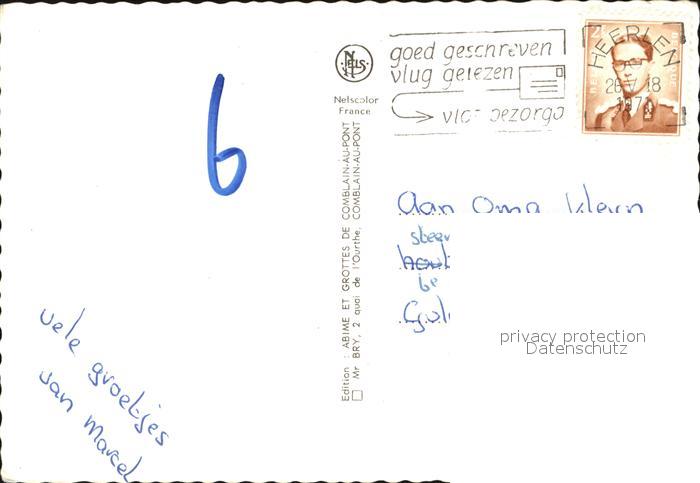 6
vele groetjes
van Marcel
NELS
Nelscolor
France
Edition : ABIME ET GROTTES DE COMBLAIN-AU-PONT
Mr BRY, 2 quai de l'Ourthe, COMBLAIN-AU-PONT
goed geschreven
vlug gelezen
vlot bezorgd
HEERLEN
18
Aan Oma Kleyn
privacy protection
Datenschutz